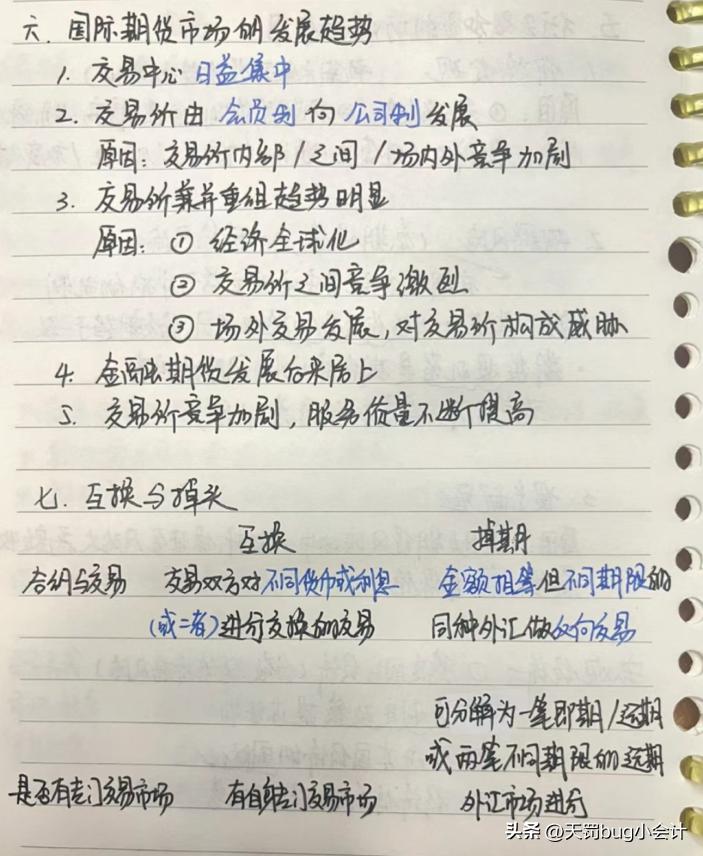 六. 国际期货市场的发展趋势
1. 交易中心日益集中
2. 交易所由 会员制 向 公司制 发展
原因: 交易所内部 / 之间 / 场内外竞争加剧
3. 交易所兼并重组趋势明显
原因: ① 经济全球化
② 交易所之间竞争激烈
③ 场外交易发展,对交易所构成威胁
4. 金融期货发展后来居上
5. 交易所竞争加剧,服务质量不断提高
七. 互换与掉头
互换 掉期
合约与交易 交易双方对不同货币或利息 金额相等但不同期限的
(或二者)进行交换的交易 同种外汇做反向交易
可分解为一笔即期/远期
或两笔不同期限的远期
是否有专门交易市场 有自身专门交易市场 外汇市场进行
头条 @天罚bug小会计